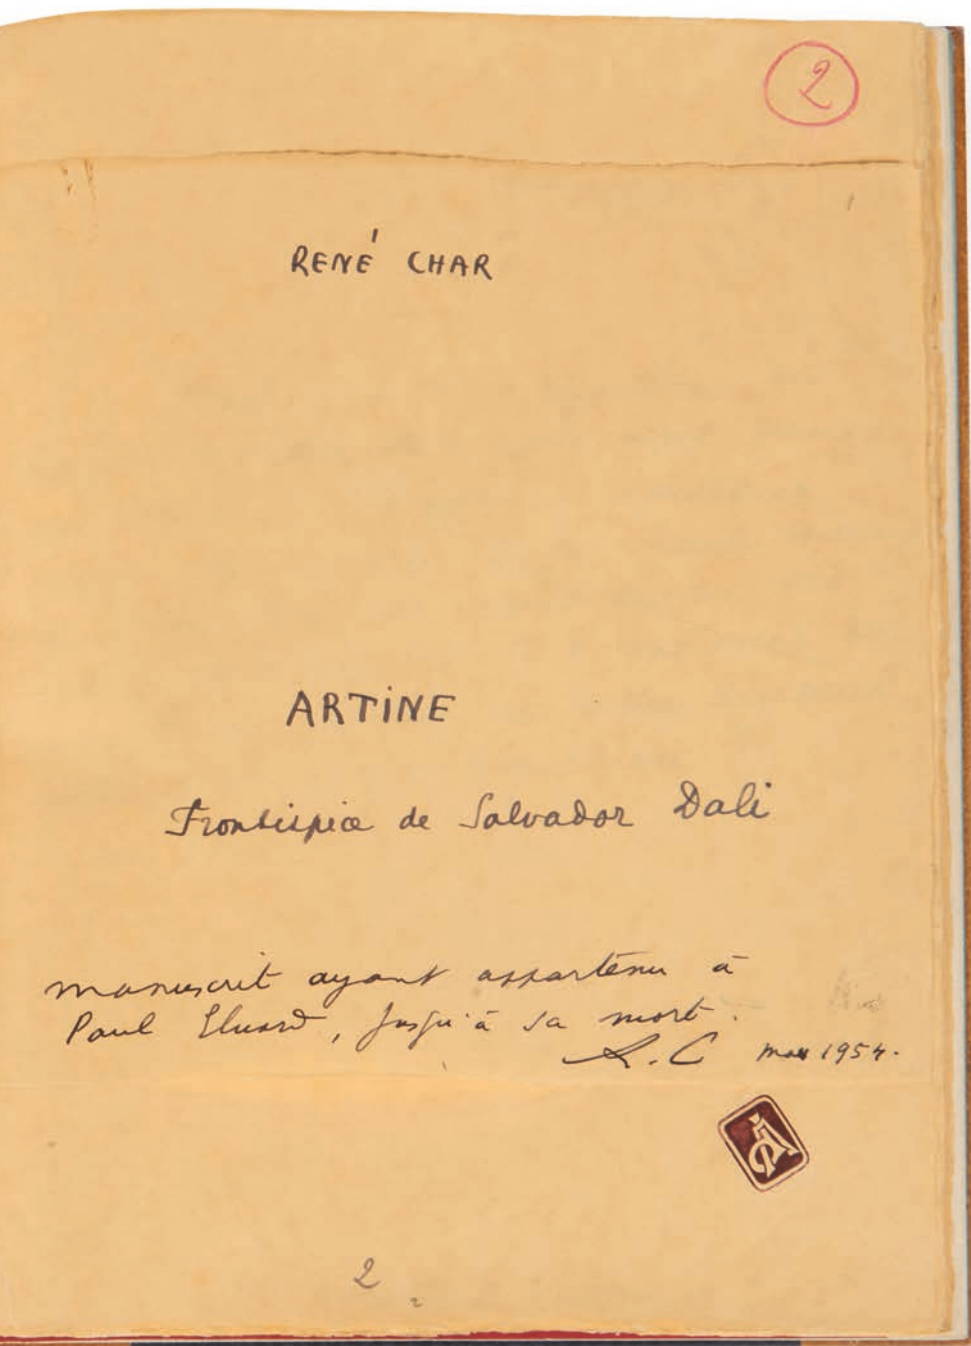 2
RENÉ CHAR
ARTINE
Frontispice de Salvador Dali
manuscrit ayant appartenu à
Paul Eluard, jusqu'à sa mort.
R. C 1954.
2
2